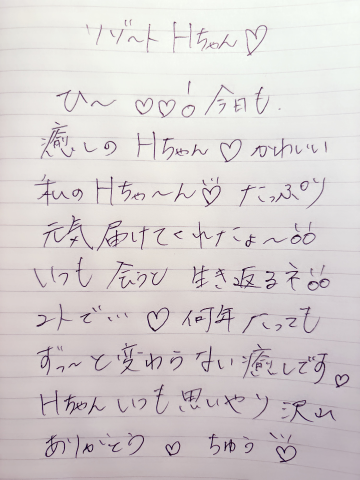 リゾート Hちゃん♡
ひ〜 ♡♡! 今日も.
癒しの Hちゃん♡ かわいい
私の Hちゃ〜ん♡ たっぷり
元気届けてくれたよ〜
いつも 会うと 生き返るネ
2人で… ♡ 何年たっても
ずっ〜と変わらない癒しです♡
Hちゃんいつも思いやり沢山
ありがとう ♡ ちゅう♡